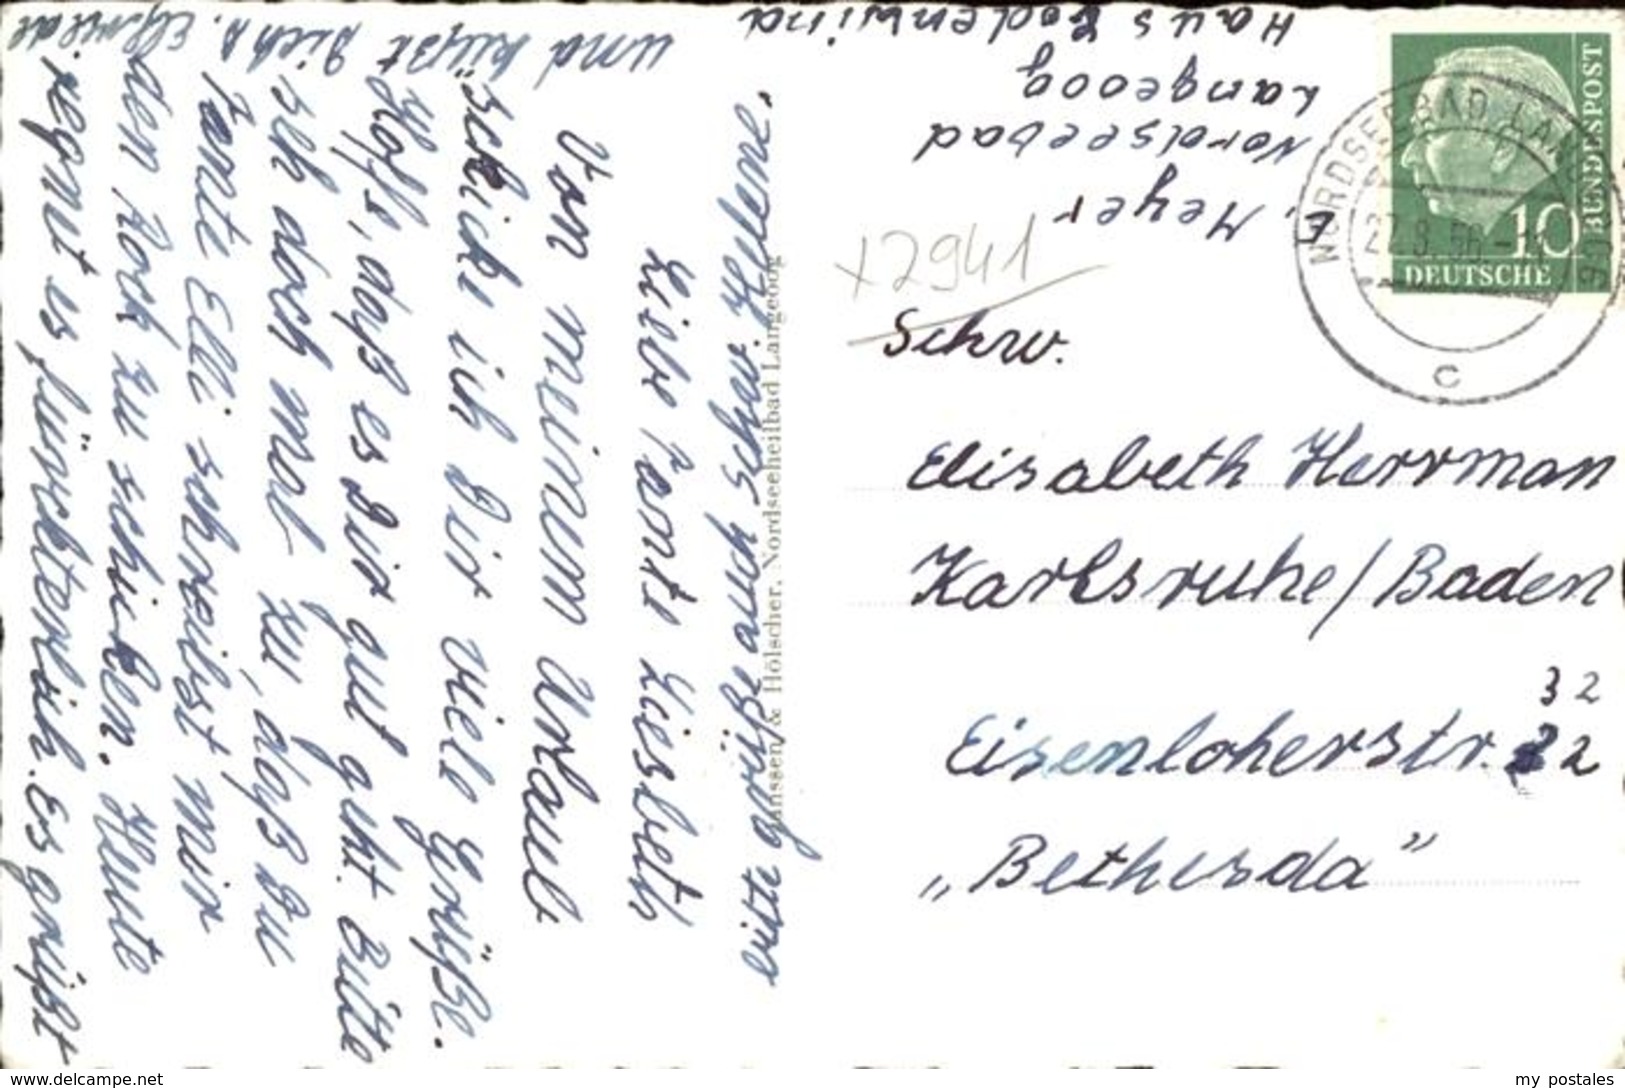 Liebe Tante Liesbeth
Von meinem Urlaub
schicke ich Dir viele Grüße.
Hoffe, daß es Dir gut geht. Bitte
seh doch mal zu, daß Du
Tante Elli schreibst mir
den Rock zu schicken. Heute
regnet es fürchterlich. Es grüßt
und küßt Dich
grüße auch Schw. Helene.
Hölscher, Nordseeheilbad Langeoog
E. Meyer
Nordseebad
Langeoog
Haus Bodenwind
x2941
Schw.
Elisabeth Herrman
Karlsruhe/Baden
32
Eisenloherstr. 32
„Bethesda"
NORDSEEBAD LANGEOOG
27.8.56
c
10
DEUTSCHE
BUNDESPOST
www.delcampe.net
my_postales